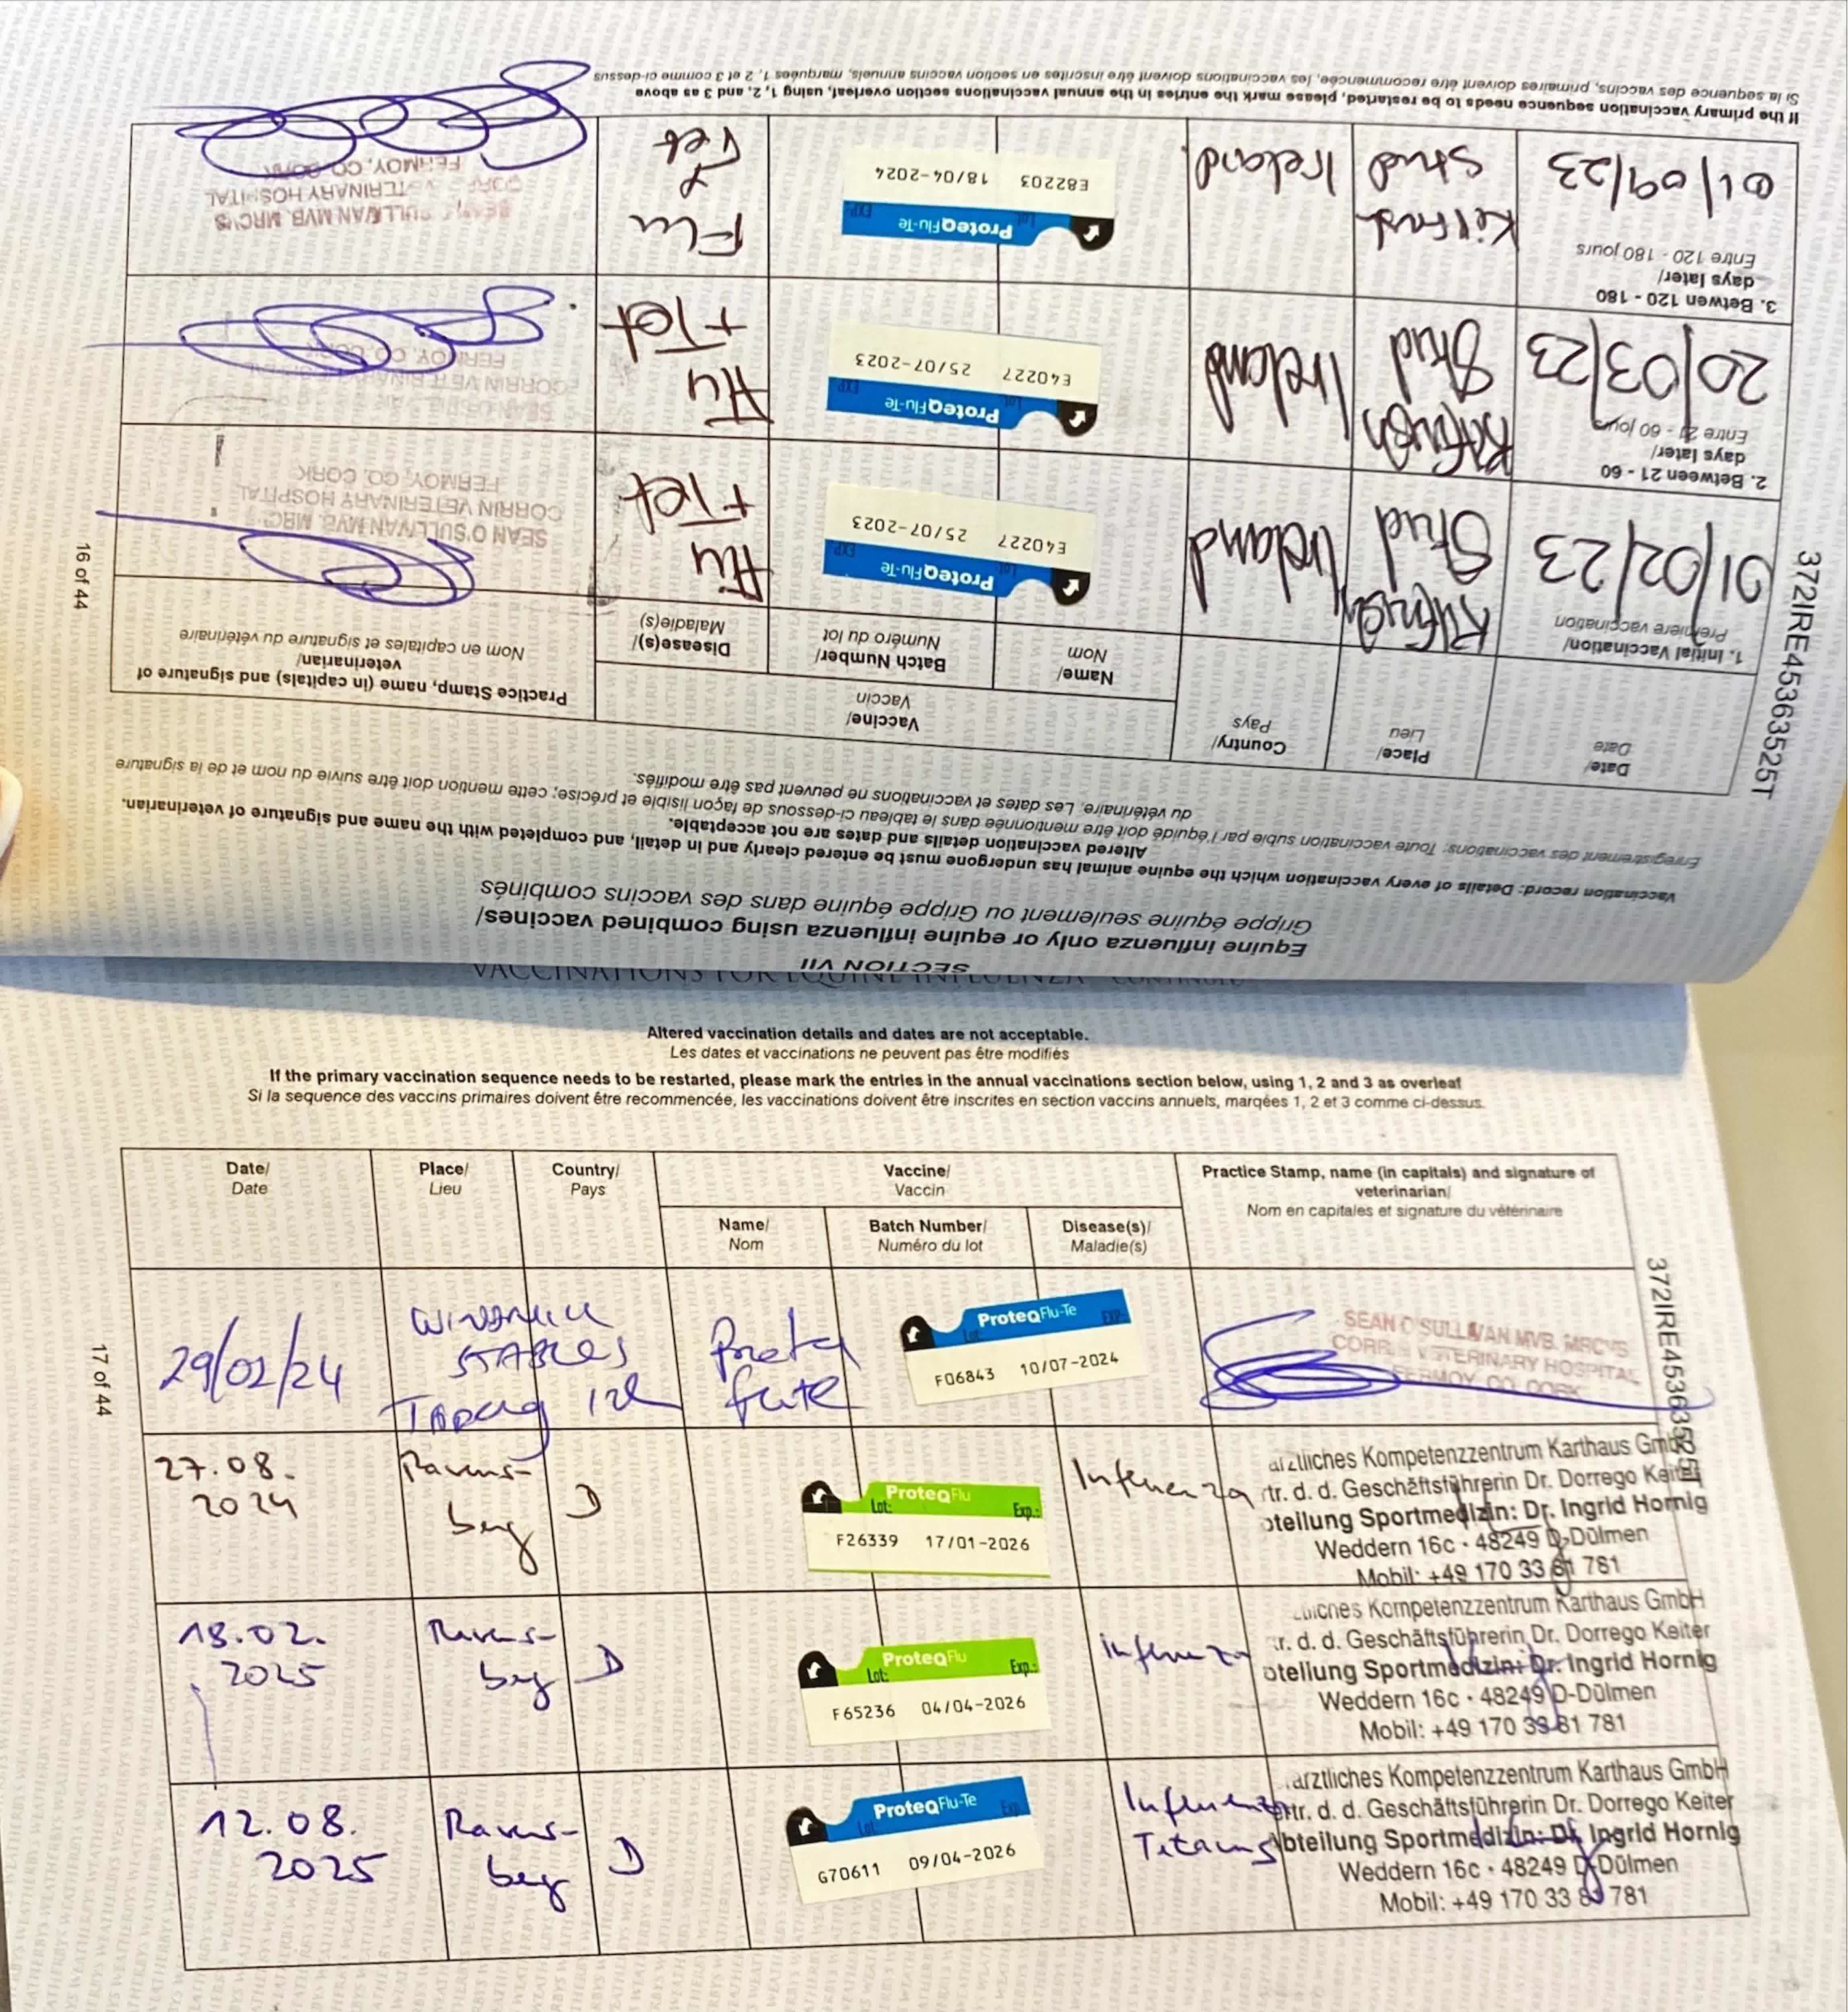 SECTION VII
Equine influenza only or equine influenza using combined vaccines/
Grippe équine seulement ou Grippe équine dans des vaccins combinés
Vaccination record: Details of every vaccination which the equine animal has undergone must be entered clearly and in detail, and completed with the name and signature of veterinarian.
Altered vaccination details and dates are not acceptable.
Enregistrement des vaccinations: Toute vaccination subie par l'équidé doit être mentionnée dans le tableau ci-dessous de façon lisible et précise; cette mention doit être suivie du nom et de la signature
du vétérinaire. Les dates et vaccinations ne peuvent pas être modifiés.
Date/
Date
Place/
Lieu
Country/
Pays
Vaccine/
Vaccin
Name/
Nom
Batch Number/
Numéro du lot
Disease(s)/
Maladie(s)
Practice Stamp, name (in capitals) and signature of
veterinarian/
Nom en capitales et signature du vétérinaire
1. Initial Vaccination/
Première vaccination
01/02/23
Stud
Ireland
ProteqFlu-Te
Lot: EXP:
E40227 25/07-2023
Flu
+Tet
SEAN O'SULLIVAN MVB. MRCVS
CORRIN VETERINARY HOSPITAL
FERMOY, CO. CORK
2. Between 21 - 60
days later/
Entre 21 - 60 jours
20/03/23
Stud
Ireland
ProteqFlu-Te
Lot: EXP:
E40227 25/07-2023
Flu
+Tet
CORRIN VETERINARY
FERMOY, CO. CORK
3. Betwen 120 - 180
days later/
Entre 120 - 180 jours
01/09/23
Stud
Ireland
ProteqFlu-Te
Lot: EXP:
E82203 18/04-2024
Flu
&
Tet
SULLIVAN MVB. MRCVS
VETERINARY HOSPITAL
FERMOY, CO. CORK
If the primary vaccination sequence needs to be restarted, please mark the entries in the annual vaccinations section overleaf, using 1, 2, and 3 as above
Si la sequence des vaccins, primaires doivent être recommencée, les vaccinations doivent être inscrites en section vaccins annuels, marquées 1, 2 et 3 comme ci-dessus
16 of 44
372IRE45363525T
VACCINATIONS FOR EQUINE INFLUENZA - CONTINUED
Altered vaccination details and dates are not acceptable.
Les dates et vaccinations ne peuvent pas être modifiés
If the primary vaccination sequence needs to be restarted, please mark the entries in the annual vaccinations section below, using 1, 2 and 3 as overleaf
Si la sequence des vaccins primaires doivent être recommencée, les vaccinations doivent être inscrites en section vaccins annuels, marqées 1, 2 et 3 comme ci-dessus.
Date/
Date
Place/
Lieu
Country/
Pays
Vaccine/
Vaccin
Name/
Nom
Batch Number/
Numéro du lot
Disease(s)/
Maladie(s)
Practice Stamp, name (in capitals) and signature of
veterinarian/
Nom en capitales et signature du vétérinaire
29/02/24
STABLES
ProteqFlu-Te
Lot: EXP:
F06843 10/07-2024
SEAN O'SULLIVAN MVB. MRCVS
CORRIN VETERINARY HOSPITAL
FERMOY, CO. CORK
27.08.
2024
Ravens-
berg
D
ProteqFlu
Lot: Exp.:
F26339 17/01-2026
Influenza
ärztliches Kompetenzzentrum Karthaus GmbH
rtr. d. d. Geschäftsführerin Dr. Dorrego Keiter
bteilung Sportmedizin: Dr. Ingrid Hornig
Weddern 16c · 48249 D-Dülmen
Mobil: +49 170 33 81 781
18.02.
2025
Ravens-
berg
D
ProteqFlu
Lot: Exp.:
F65236 04/04-2026
Influenza
liches Kompetenzzentrum Karthaus GmbH
r. d. d. Geschäftsführerin Dr. Dorrego Keiter
bteilung Sportmedizin: Dr. Ingrid Hornig
Weddern 16c · 48249 D-Dülmen
Mobil: +49 170 33 81 781
12.08.
2025
Ravens-
berg
D
ProteqFlu-Te
Lot: Exp
G70611 09/04-2026
Influenza
Tetanus
ärztliches Kompetenzzentrum Karthaus GmbH
rtr. d. d. Geschäftsführerin Dr. Dorrego Keiter
Abteilung Sportmedizin: Dr. Ingrid Hornig
Weddern 16c · 48249 D-Dülmen
Mobil: +49 170 33 81 781
17 of 44
372IRE45363525T